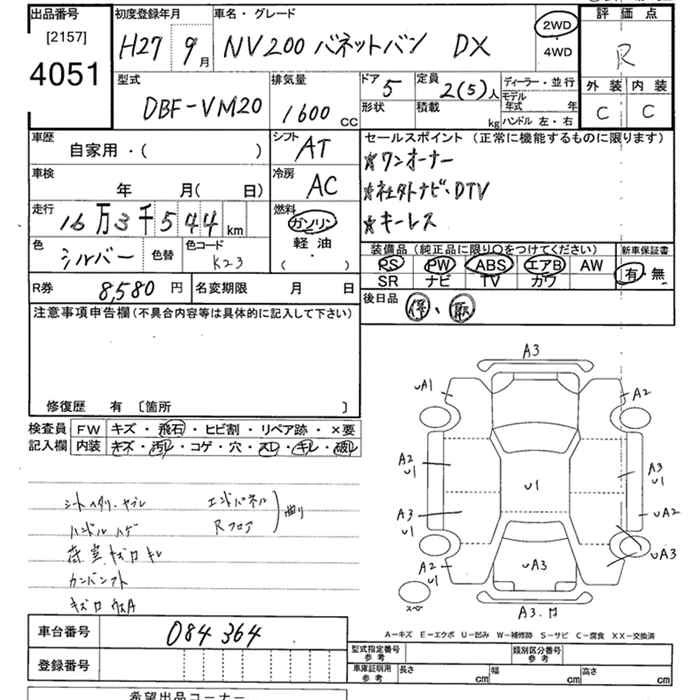 出品番号 初度登録年月 車名・グレード 2WD 評価点
[2157] H27 9月 NV200 バネットバン DX 4WD R
4051
型式 排気量 ドア 5 定員 2(5)人 ディーラー・並行 外装 内装
DBF-VM20 1600cc 形状 積載 kg モデル年式 年 C C
ハンドル 左・右
車歴 自家用・( ) シフト AT セールスポイント (正常に機能するものに限ります)
☆ワンオーナー
車検 年 月( 日) 冷房 AC ☆社外ナビ・DTV
走行 16万3千544km 燃料 ガソリン ☆キーレス
軽油
( ・ )
色 シルバー 色替 色コード K23
装備品 (純正品に限り○をつけてください) 新車保証書
PS PW ABS エアB AW 有・無
SR ナビ TV カワ
R券 8,580円 名変期限 月 日 後日品 保、取
注意事項申告欄 (不具合内容等は具体的に記入して下さい)
修復歴 有 [箇所 ]
検査員 FW キズ・飛石・ヒビ割・リペア跡・×要
記入欄 内装 キズ・汚レ・コゲ・穴・スレ・キレ・破レ
エンドパネル
ハンドルハゲ Rフロア 曲り
A3
UA1 A2
A2 U1 U1 A3 U1
A3 U1 UA2
A2 U1 UA3 UA3
スペ A3.
A-キズ E-エクボ U-凹み W-補修跡 S-サビ C-腐食 XX-交換済
車台番号 084364
型式指定番号 参考 類別区分番号 参考
登録番号 車庫証明用 参考 長さ cm 幅 cm 高さ cm
希望出品コーナー